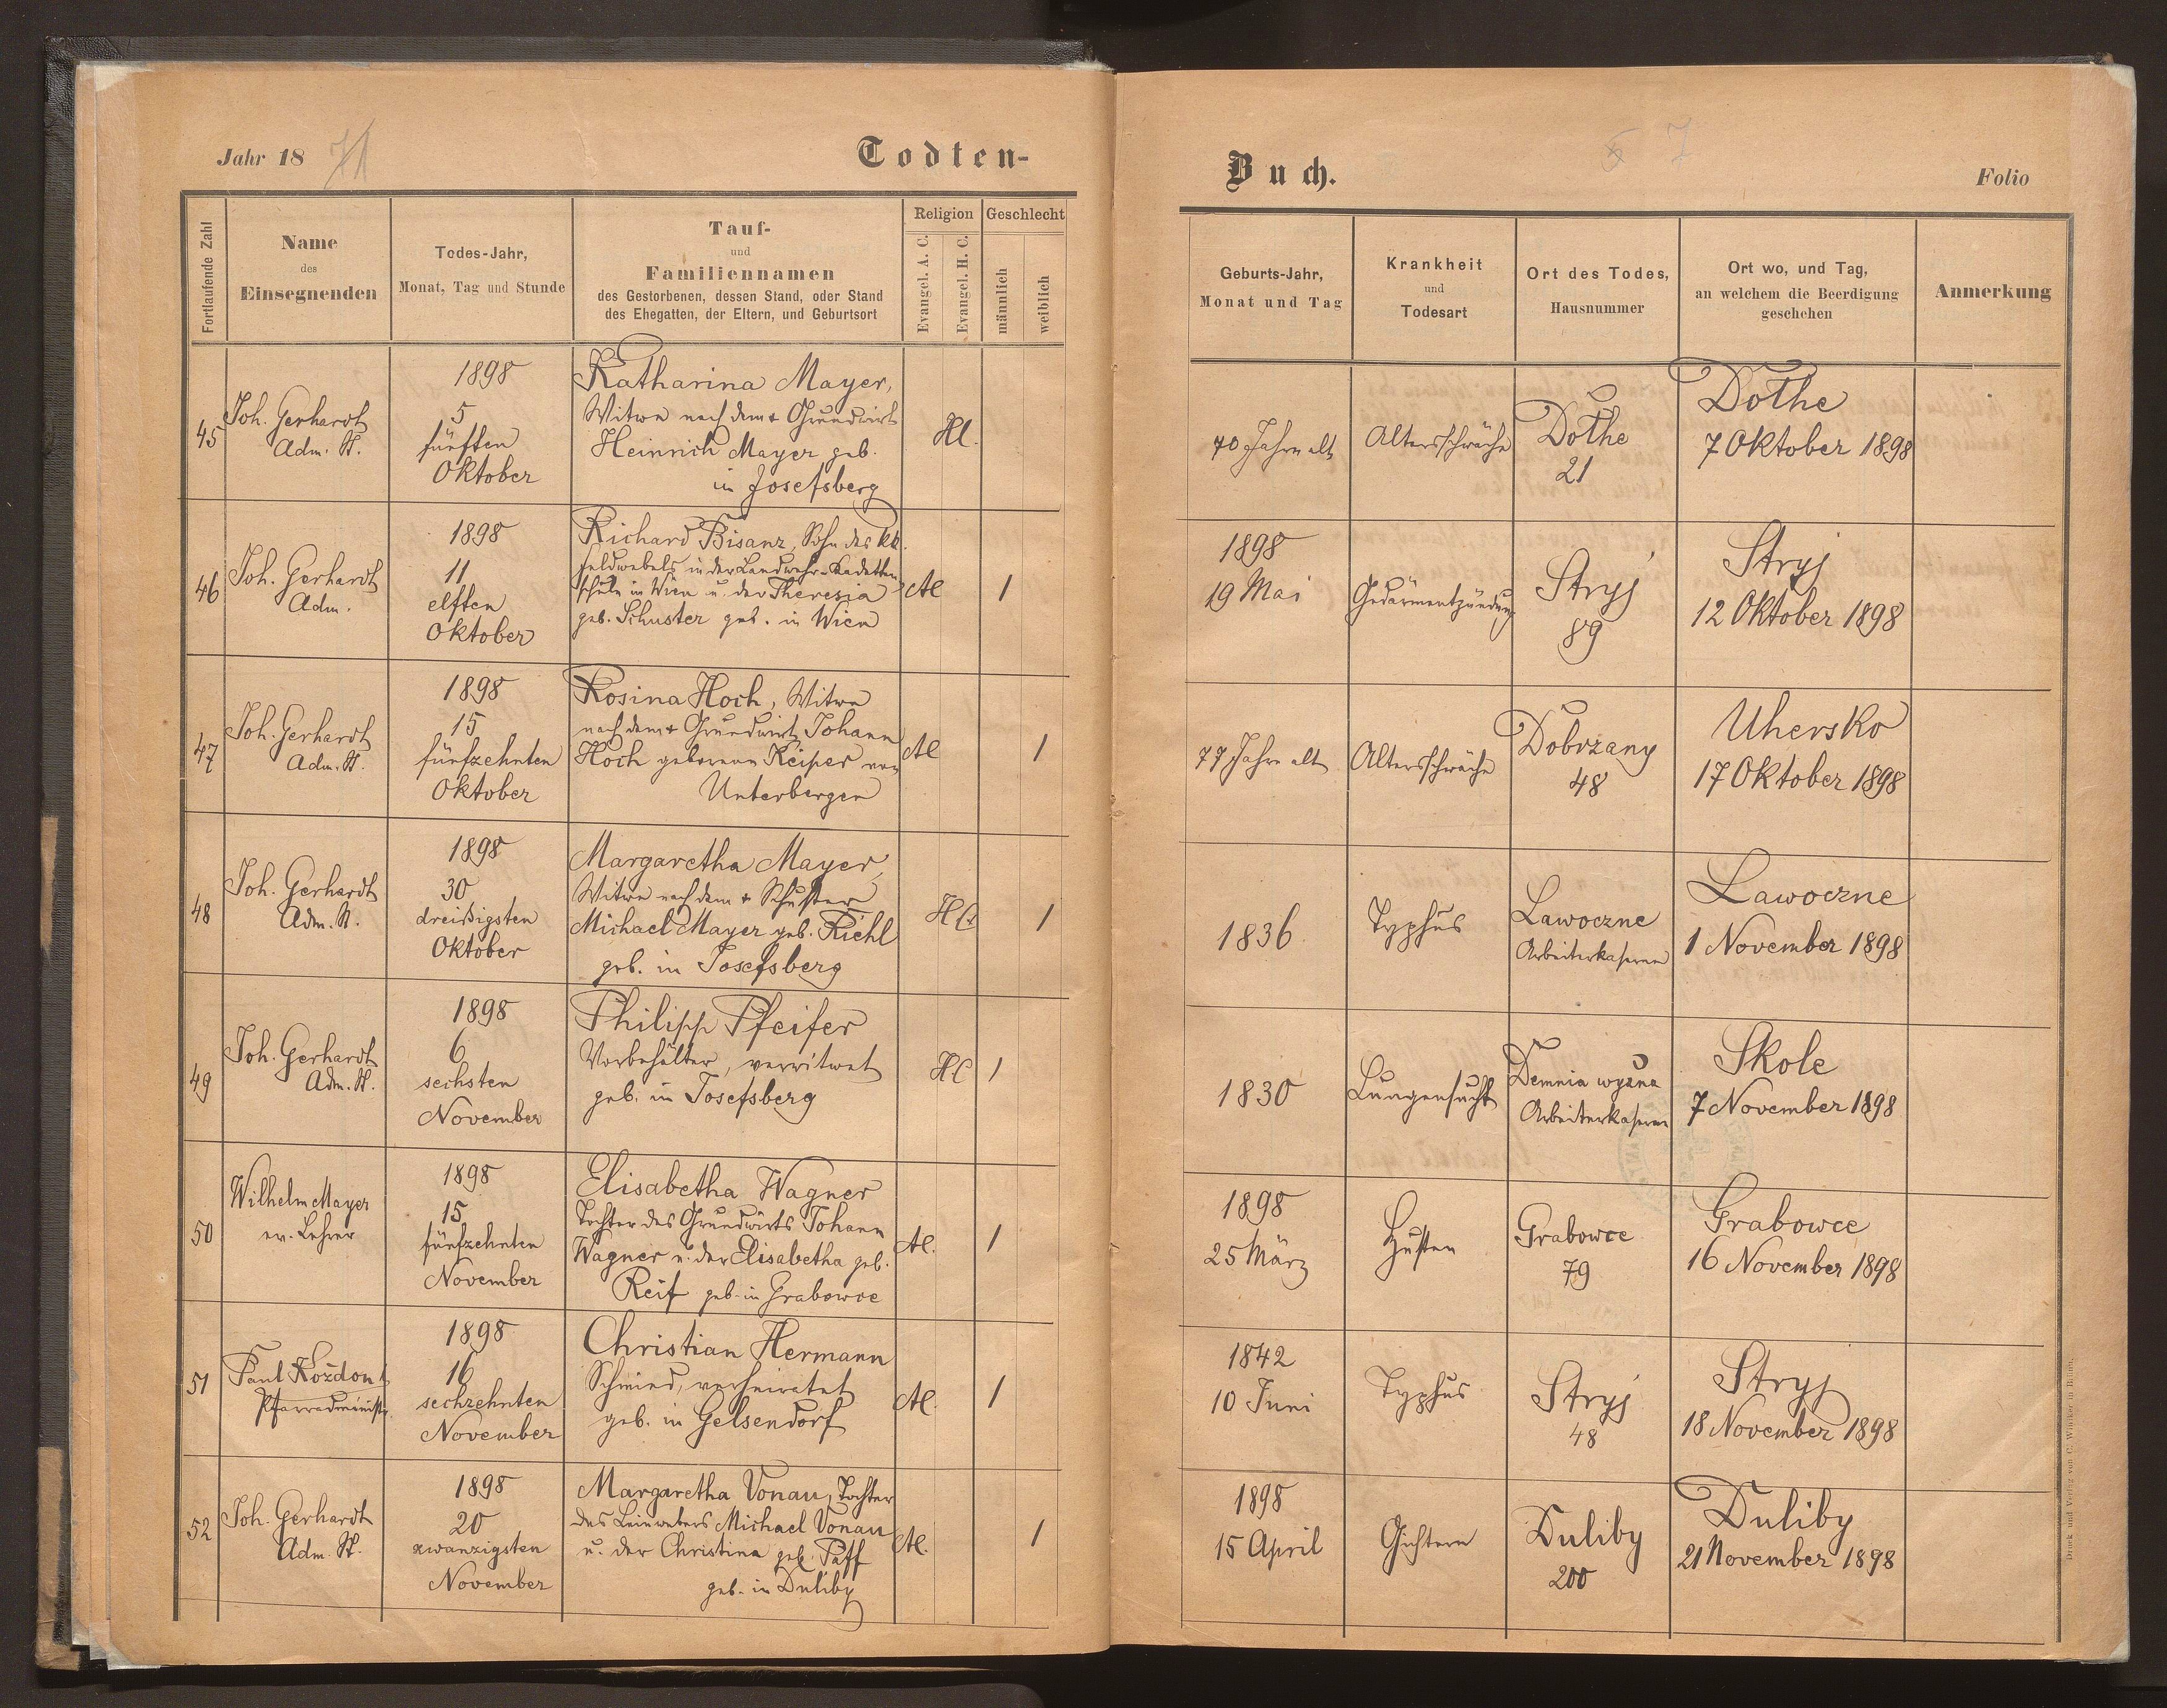 Jahr 18 71
Todten-
Fortlaufende Zahl
Name
des
Einsegnenden
Todes-Jahr,
Monat, Tag und Stunde
Tauf-
und
Familiennamen
des Gestorbenen, dessen Stand, oder Stand
des Ehegatten, der Eltern, und Geburtsort
Religion
Evangel. A. C.
Evangel. H. C.
Geschlecht
männlich
weiblich
45
Joh. Gerhardt
Adm. St.
1898
5
fünften
Oktober
Katharina Mayer,
Witwe nach dem + Grundwirt
Heinrich Mayer geb.
in Josefsberg
Hl.
46
Joh. Gerhardt
Adm.
1898
11
elften
Oktober
Richard Bisanz, Sohn des kk.
Feldwebels in der Landwehr-Kadetten
schule in Wien u. der Theresia
geb. Schuster geb. in Wien
Al
1
47
Joh. Gerhardt
Adm. St.
1898
15
fünfzehnten
Oktober
Rosina Hoch, Witwe
nach dem + Grundwirt Johann
Hoch geborene Keiper von
Unterbergen
Al
1
48
Joh. Gerhardt
Adm. St.
1898
30
dreißigsten
Oktober
Margaretha Mayer,
Witwe nach dem + Schuster
Michael Mayer geb. Riehl
geb. in Josefsberg
HC
1
49
Joh. Gerhardt
Adm. St.
1898
6
sechsten
November
Philipp Pfeifer
Vorbehälter, verwitwet
geb. in Josefsberg
HC
1
50
Wilhelm Mayer
ev. Lehrer
1898
15
fünfzehnten
November
Elisabetha Wagner
Tochter des Grundwirts Johann
Wagner u. der Elisabetha geb.
Reif geb. in Grabowce
Al.
1
51
Paul Kozdon
Pfarradministr.
1898
16
sechzehnten
November
Christian Hermann
Schmied, verheiratet
geb. in Gelsendorf
Al.
1
52
Joh. Gerhardt
Adm. St.
1898
20
zwanzigsten
November
Margaretha Vonau, Tochter
des Leinwebers Michael Vonau
u. der Christina geb. Paff
geb. in Duliby
Al.
1
Buch.
7
Folio
Geburts-Jahr,
Monat und Tag
Krankheit
und
Todesart
Ort des Todes,
Hausnummer
Ort wo, und Tag,
an welchem die Beerdigung
geschehen
Anmerkung
70 Jahre alt
Altersschwäche
Dothe
21
Dothe
7 Oktober 1898
1898
19 Mai
Gedärmentzündung
Stryj
89
Stryj
12 Oktober 1898
77 Jahre alt
Altersschwäche
Dobrzany
48
Uhersko
17 Oktober 1898
1836
Typhus
Lawoczne
Arbeiterkaserne
Lawoczne
1 November 1898
1830
Lungensucht
Demnia wyżna
Arbeiterkaserne
Skole
7 November 1898
1898
25 März
Husten
Grabowce
79
Grabowce
16 November 1898
1842
10 Juni
Typhus
Stryj
48
Stryj
18 November 1898
1898
15 April
Gichtern
Duliby
200
Duliby
21 November 1898